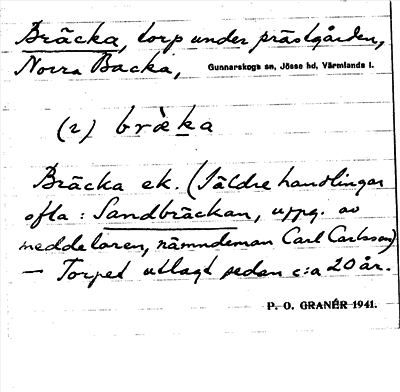 Bräcka, torp under prästgården,
Norra Backa, Gunnarskogs sn, Jösse hd, Värmlands l.
(i) bræ̀ka
Bräcka ek. (I äldre handlingar
ofta: Sandbräckan, uppg. av
meddelaren, nämndeman Carl Carlsson)
— Torpet utlagt sedan c:a 20 år.
P. O. GRANÉR 1941.